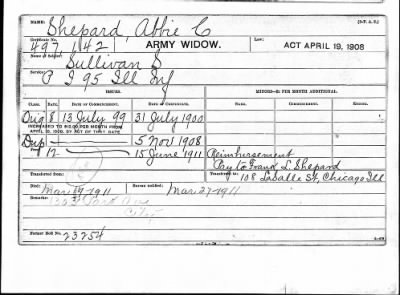 NAME: Shepard Abbie C
Certificate No. 497,142 ARMY WIDOW. Law: ACT APRIL 19, 1908
Name of Soldier: Sullivan S
Service: P I 95 Ill Inf
ISSUES. MINORS—$2 PER MONTH ADDITIONAL.
CLASS. RATE. DATE OF COMMENCEMENT. DATE OF CERTIFICATE.
Orig 8 13 July 99 31 July 1900
INCREASED TO $12.00 PER MONTH FROM
APRIL 19, 1908, BY ACT OF THAT DATE
Dup 5 Nov 1908
12 15 June 1911 Reimbursement
Pay to Frank L. Shepard
Transferred from: Transferred to: 108 LaSalle St, Chicago Ill
Died: Mar 19-1911 Bureau notified: Mar. 27-1911
Remarks:
City
Former Roll No. 23254